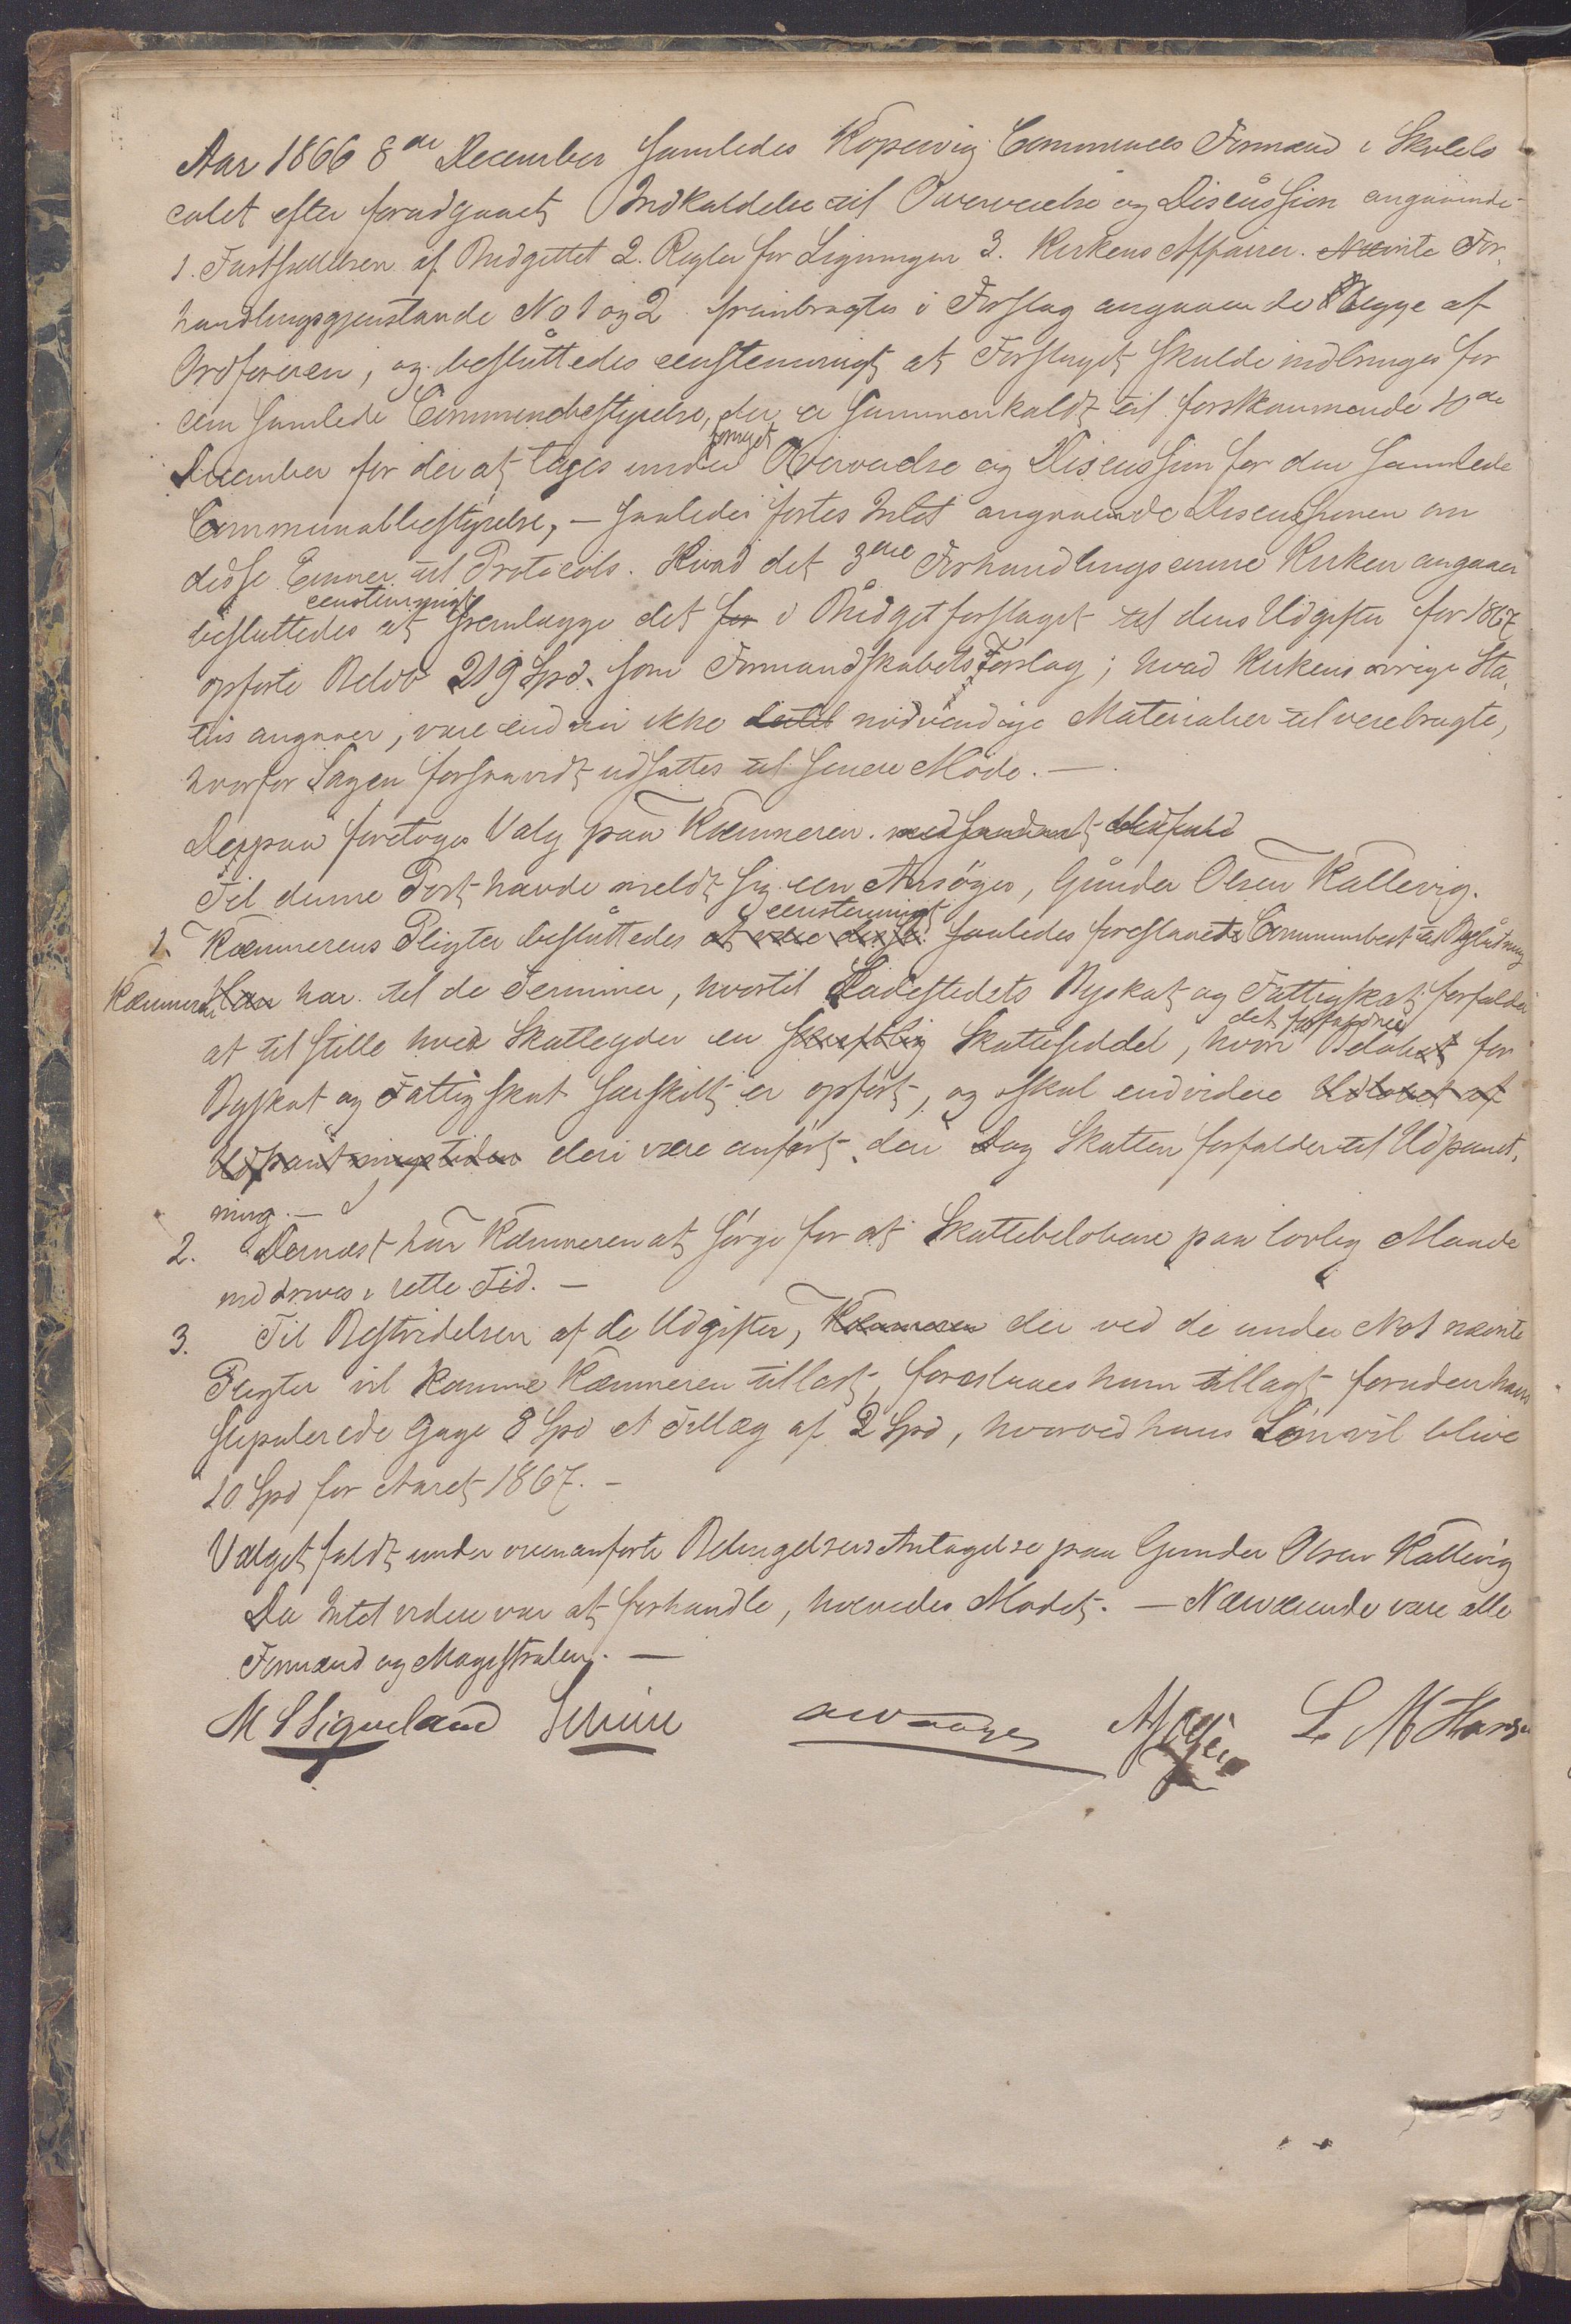 Aar 1866 8de December samledes Kopervig Communes Formænd i Skolelo
calet efter forudgaaet Indkaldelse til Overveielse og Discussion angaaende
1. Fastsættelsen af Budgettet 2. Regler for Ligningen 3. Kirkens Affairer. Nævnte For-
handlingsgjenstande No 1 og 2 frembragtes i Forslag angaaende Begge af
Ordføreren, og besluttedes eenstemmigt at Forslaget skulde indbringes for
den samlede Communebestyrelse, der er sammenkaldt til førstkommende 10de
fornyet
December for der at tages under Overveielse og Discussion for den samlede
Communalbestyrelse, – saaledes førtes Intet angaaende Discussionen om
disse Emner til Protocols. Hvad det 3die Forhandlingsemne Kirken angaaer
eenstemmigt
besluttedes at fremlægge det for i Budgetforslaget til dens Udgifter for 1867
opførte Beløb 219 Spd. som Formandskabets Forslag; hvad Kirkens øvrige Sta-
tus angaaer, vare endnu ikke nødvendige Materialier tilveiebragte,
hvorfor Sagen forsaavidt udsattes til senere Møde. –
Derpaa foretoges Valg paa Kæmneren.
Til denne Post havde meldt sig een Ansøger, Gunder Olsen Kallevig.
eenstemmigt
1. Kæmnerens Pligter besluttedes at være disse saaledes foreslaaet Communbest. til Beslutning
Kæmneren har til de Terminer, hvortil Ladestedets Byskat og Fattigskat forfalder
det forfaldne
at tilstille hver Skatteyder en skriftlig Skatteseddel, hvori Beløbet for
Byskat og Fattigskat særskilt er opført, og skal endvidere Udløbet af
Udpantningstiden deri være anført den Dag Skatten forfalder til Udpant-
ning. –
2. Dernæst har Kæmneren at sørge for at Skattebeløbene paa lovlig Maade
inddrives i rette Tid. –
3. Til Bestridelsen af de Udgifter, Kæmneren der ved de under No 1 nævnte
Pligter vil komme Kæmneren tillast, foreslaaes ham tillagt foruden hans
stipulerede Gage 8 Spd et Tillæg af 2 Spd, hvorved hans Løn vil blive
10 Spd for Aaret 1867. –
Valget faldt under ovenanførte Betingelsers Antagelse paa Gunder Olsen Kallevig
Da Intet videre var at forhandle, hævedes Mødet. – Nærværende vare alle
Formænd og Magistraten. –
M S Sigveland L. M Hansen